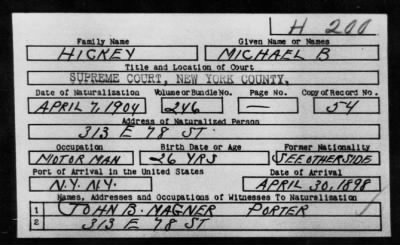 H 200
Family Name Given Name or Names
HICKEY MICHAEL B
Title and Location of Court
SUPREME COURT, NEW YORK COUNTY.
Date of Naturalization Volume or Bundle No. Page No. Copy of Record No.
APRIL 7, 1904 246 — 54
Address of Naturalized Person
313 E 78 ST.
Occupation Birth Date or Age Former Nationality
MOTOR MAN 26 YRS SEE OTHERSIDE
Port of Arrival in the United States Date of Arrival
N.Y. N.Y. APRIL 30, 1898
Names, Addresses and Occupations of Witnesses To Naturalization
1 JOHN B. MAGNER PORTER
2 313 E 78 ST